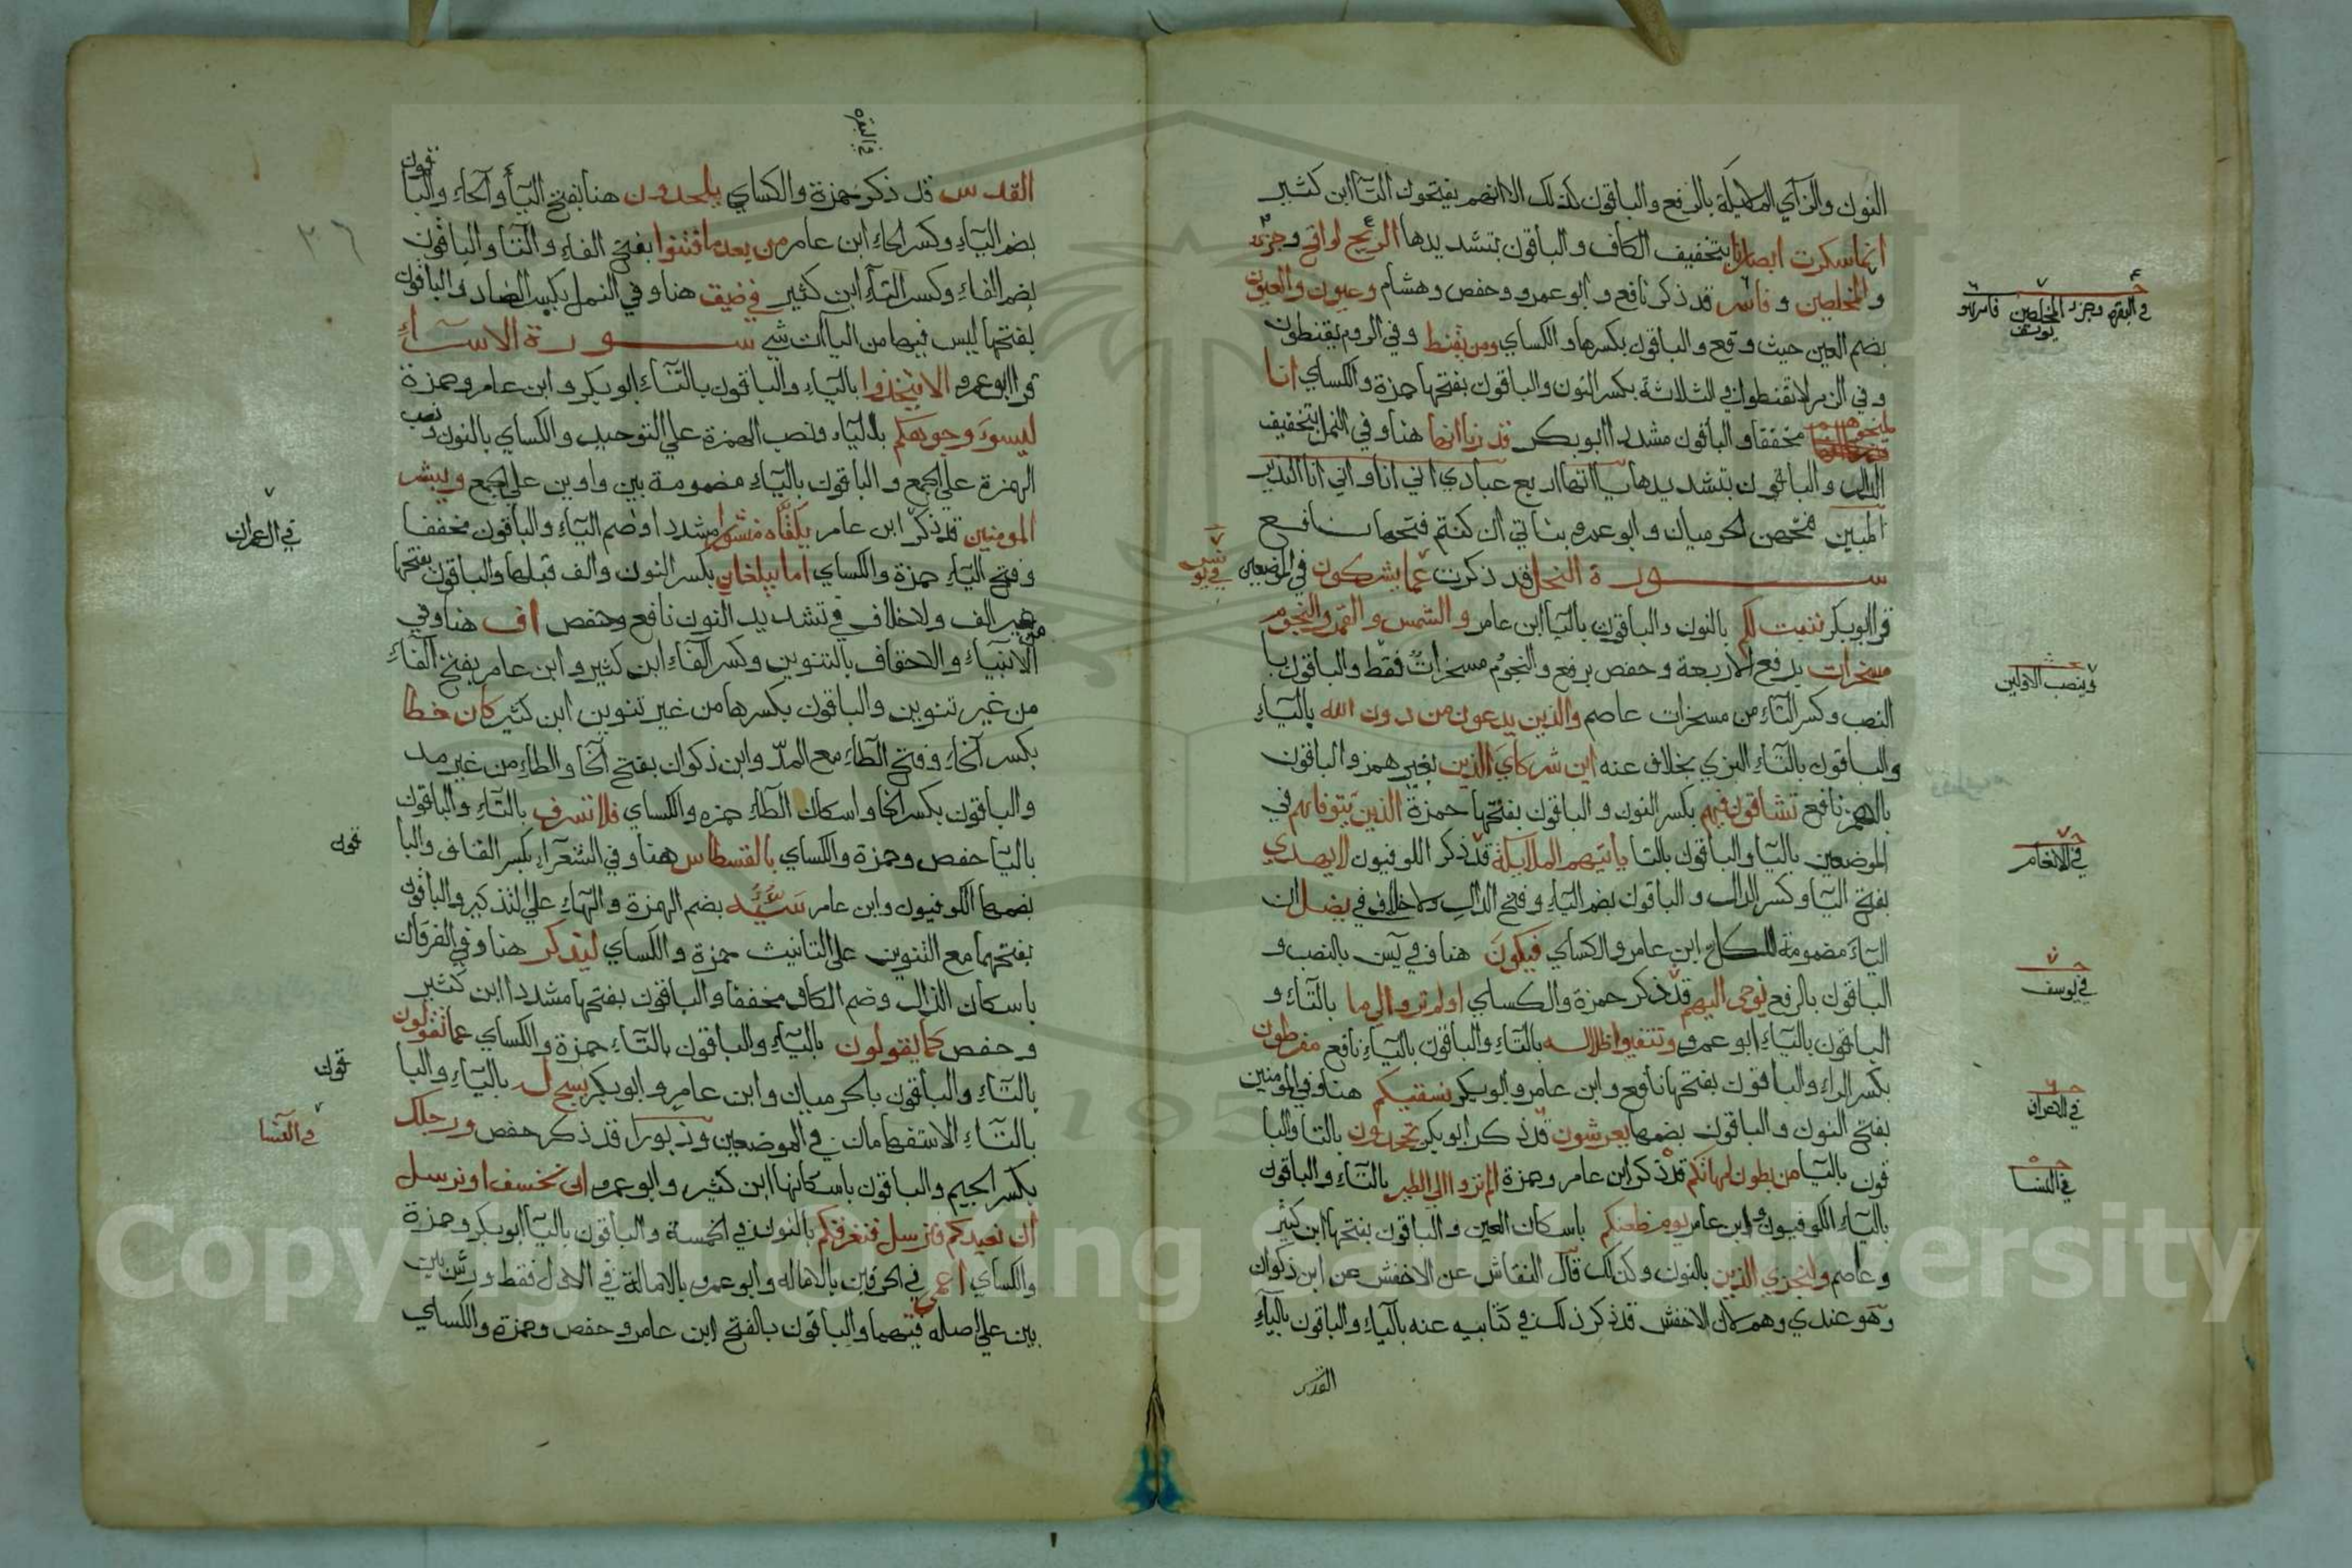 النون والزاي الملايكة بالرفع والباقون كذلك الا انهم يفتحون التآ ابن كثير
انما سكرت ابصارنا بتخفيف الكاف والباقون بتشديدها الريح لواقح وجزء
والمخلصين وفاسر قد ذكر نافع وابو عمرو وحفص وهشام وعيون والعيون
بضم العين حيث وقع والباقون بكسرها والكساي ومن يقنط وفي الروم يقنطون
وفي الزمر لا تقنطوا في الثلاثة بكسر النون والباقون بفتحها حمزة والكساي انا
لمنجوهم مخففا والباقون مشددا ابو بكر قدرنا انها هنا وفي النمل بتخفيف
الدال والباقون بتشديدها يااتها اربع عبادي اني انا واني انا النذير
المبين فتحهن الحرميان وابو عمرو بناتي ان كنتم فتحها نافع
سورة النحل قد ذكرت عما يشركون في الموضعين
قرا ابو بكر ننبت لكم بالنون والباقون باليآ ابن عامر والشمس والقمر والنجوم
مسخرات برفع الاربعة وحفص برفع والنجوم مسخرات فقط والباقون با
النصب وكسر التاء من مسخرات عاصم والذين يدعون من دون الله بالياء
والباقون بالتاء البزي بخلاف عنه اين شركاي الذين بغير همز والباقون
بالهمز نافع تشاقون فيهم بكسر النون والباقون بفتحها حمزة الذين يتوفاهم في
الموضعين باليا والباقون بالتا ياتيهم الملايكة قد ذكر الكوفيون لا يهدي
بفتح اليا وكسر الدال والباقون بضم الياء وفتح الدال ولا خلاف في يضل ان
الياء مضمومة للكل ابن عامر والكساي فيكون هنا وفي يس بالنصب و
الباقون بالرفع نوحي اليهم قد ذكر حمزة والكساي اولم تروا الى ما بالتاء و
الباقون بالياء ابو عمرو وتتفيوا ظلاله بالتاء والباقون بالياء نافع مفرطون
بكسر الراء والباقون بفتحها نافع وابن عامر وابو بكر نسقيكم هنا وفي المومنين
بفتح النون والباقون بضمها يعرشون قد ذكر ابو بكر تجحدون بالتا والبا
قون باليا من بطون امهاتكم قد ذكر ابن عامر وحمزة الم تروا الى الطير بالتاء والباقون
بالياء الكوفيون وابن عامر يوم ظعنكم باسكان العين والباقون بفتحها ابن كثير
وعاصم ولنجزي الذين بالنون وكذلك قال النقاش عن الاخفش عن ابن ذكوان
وهو عندي وهم لان الاخفش قد ذكر ذلك في كتابيه عنه بالياء والباقون بالياء
القدس
في البقرة وجزء المخلصين فاسر هو
يوسف
وينصب الاولين
في الانعام
في يوسف
في الاعراف
في النسا
القدس قد ذكر حمزة والكساي يلحدون هنا بفتح اليآ والحاء والباقون
بضم الياء وكسر الحاء ابن عامر من بعد ما فتنوا بفتح الفاء والتا والباقون
بضم الفاء وكسر التاء ابن كثير في ضيق هنا وفي النمل بكسر الضاد والباقون
بفتحها ليس فيها من الياات شي سورة الاسراء
قرا ابو عمرو الا يتخذوا بالياء والباقون بالتاء ابو بكر وابن عامر وحمزة
ليسوء وجوهكم بالياء ونصب الهمزة على التوحيد والكساي بالنون ونصب
الهمزة على الجمع والباقون بالياء مضمومة بين واوين على الجمع ويبشر
المومنين قد ذكر ابن عامر يلقاه منشورا مشددا وضم الياء والباقون مخففا
وفتح الياء حمزة والكساي اما يبلغان بكسر النون والف قبلها والباقون بفتحها
من غير الف ولا خلاف في تشديد النون نافع وحفص اف هنا وفي
الانبياء والاحقاف بالتنوين وكسر الفاء ابن كثير وابن عامر بفتح الفاء
من غير تنوين والباقون بكسرها من غير تنوين ابن كثير كان خطا
بكسر الخاء وفتح الطاء مع المد وابن ذكوان بفتح الخا والطاء من غير مد
والباقون بكسر الخا واسكان الطاء حمزه والكساي فلا تسرف بالتاء والباقون
باليا حفص وحمزة والكساي بالقسطاس هنا وفي الشعراء بكسر القاف والبا
قون
بضمها الكوفيون وابن عامر سيئه بضم الهمزة والهاء على التذكير والباقون
بفتحهما مع التنوين على التانيث حمزة والكساي ليذكر هنا وفي الفرقان
باسكان الذال وضم الكاف مخففا والباقون بفتحها مشددا ابن كثير
وحفص كما يقولون بالياء والباقون بالتاء حمزة والكساي عما تقولون
بالتاء والباقون بالحرميان وابن عامر وابو بكر يسبح له بالياء والبا
قون
بالتاء الاستفهامان في الموضعين وزبورا قد ذكر حفص ورجلك
بكسر الجيم والباقون باسكانها ابن كثير وابو عمرو ان نخسف او نرسل
ان نعيدكم فنرسل فنغرقكم بالنون في الخمسة والباقون باليا ابو بكر وحمزة
والكساي اعمى في الحرفين بالاماله وابو عمرو بالامالة في الاول فقط وورش بين
بين على اصله فيهما والباقون بالفتح ابن عامر وحفص وحمزة والكساي
في البقره
٢٦
في ال عمران
في النسا
Copyright © King Saud University
195